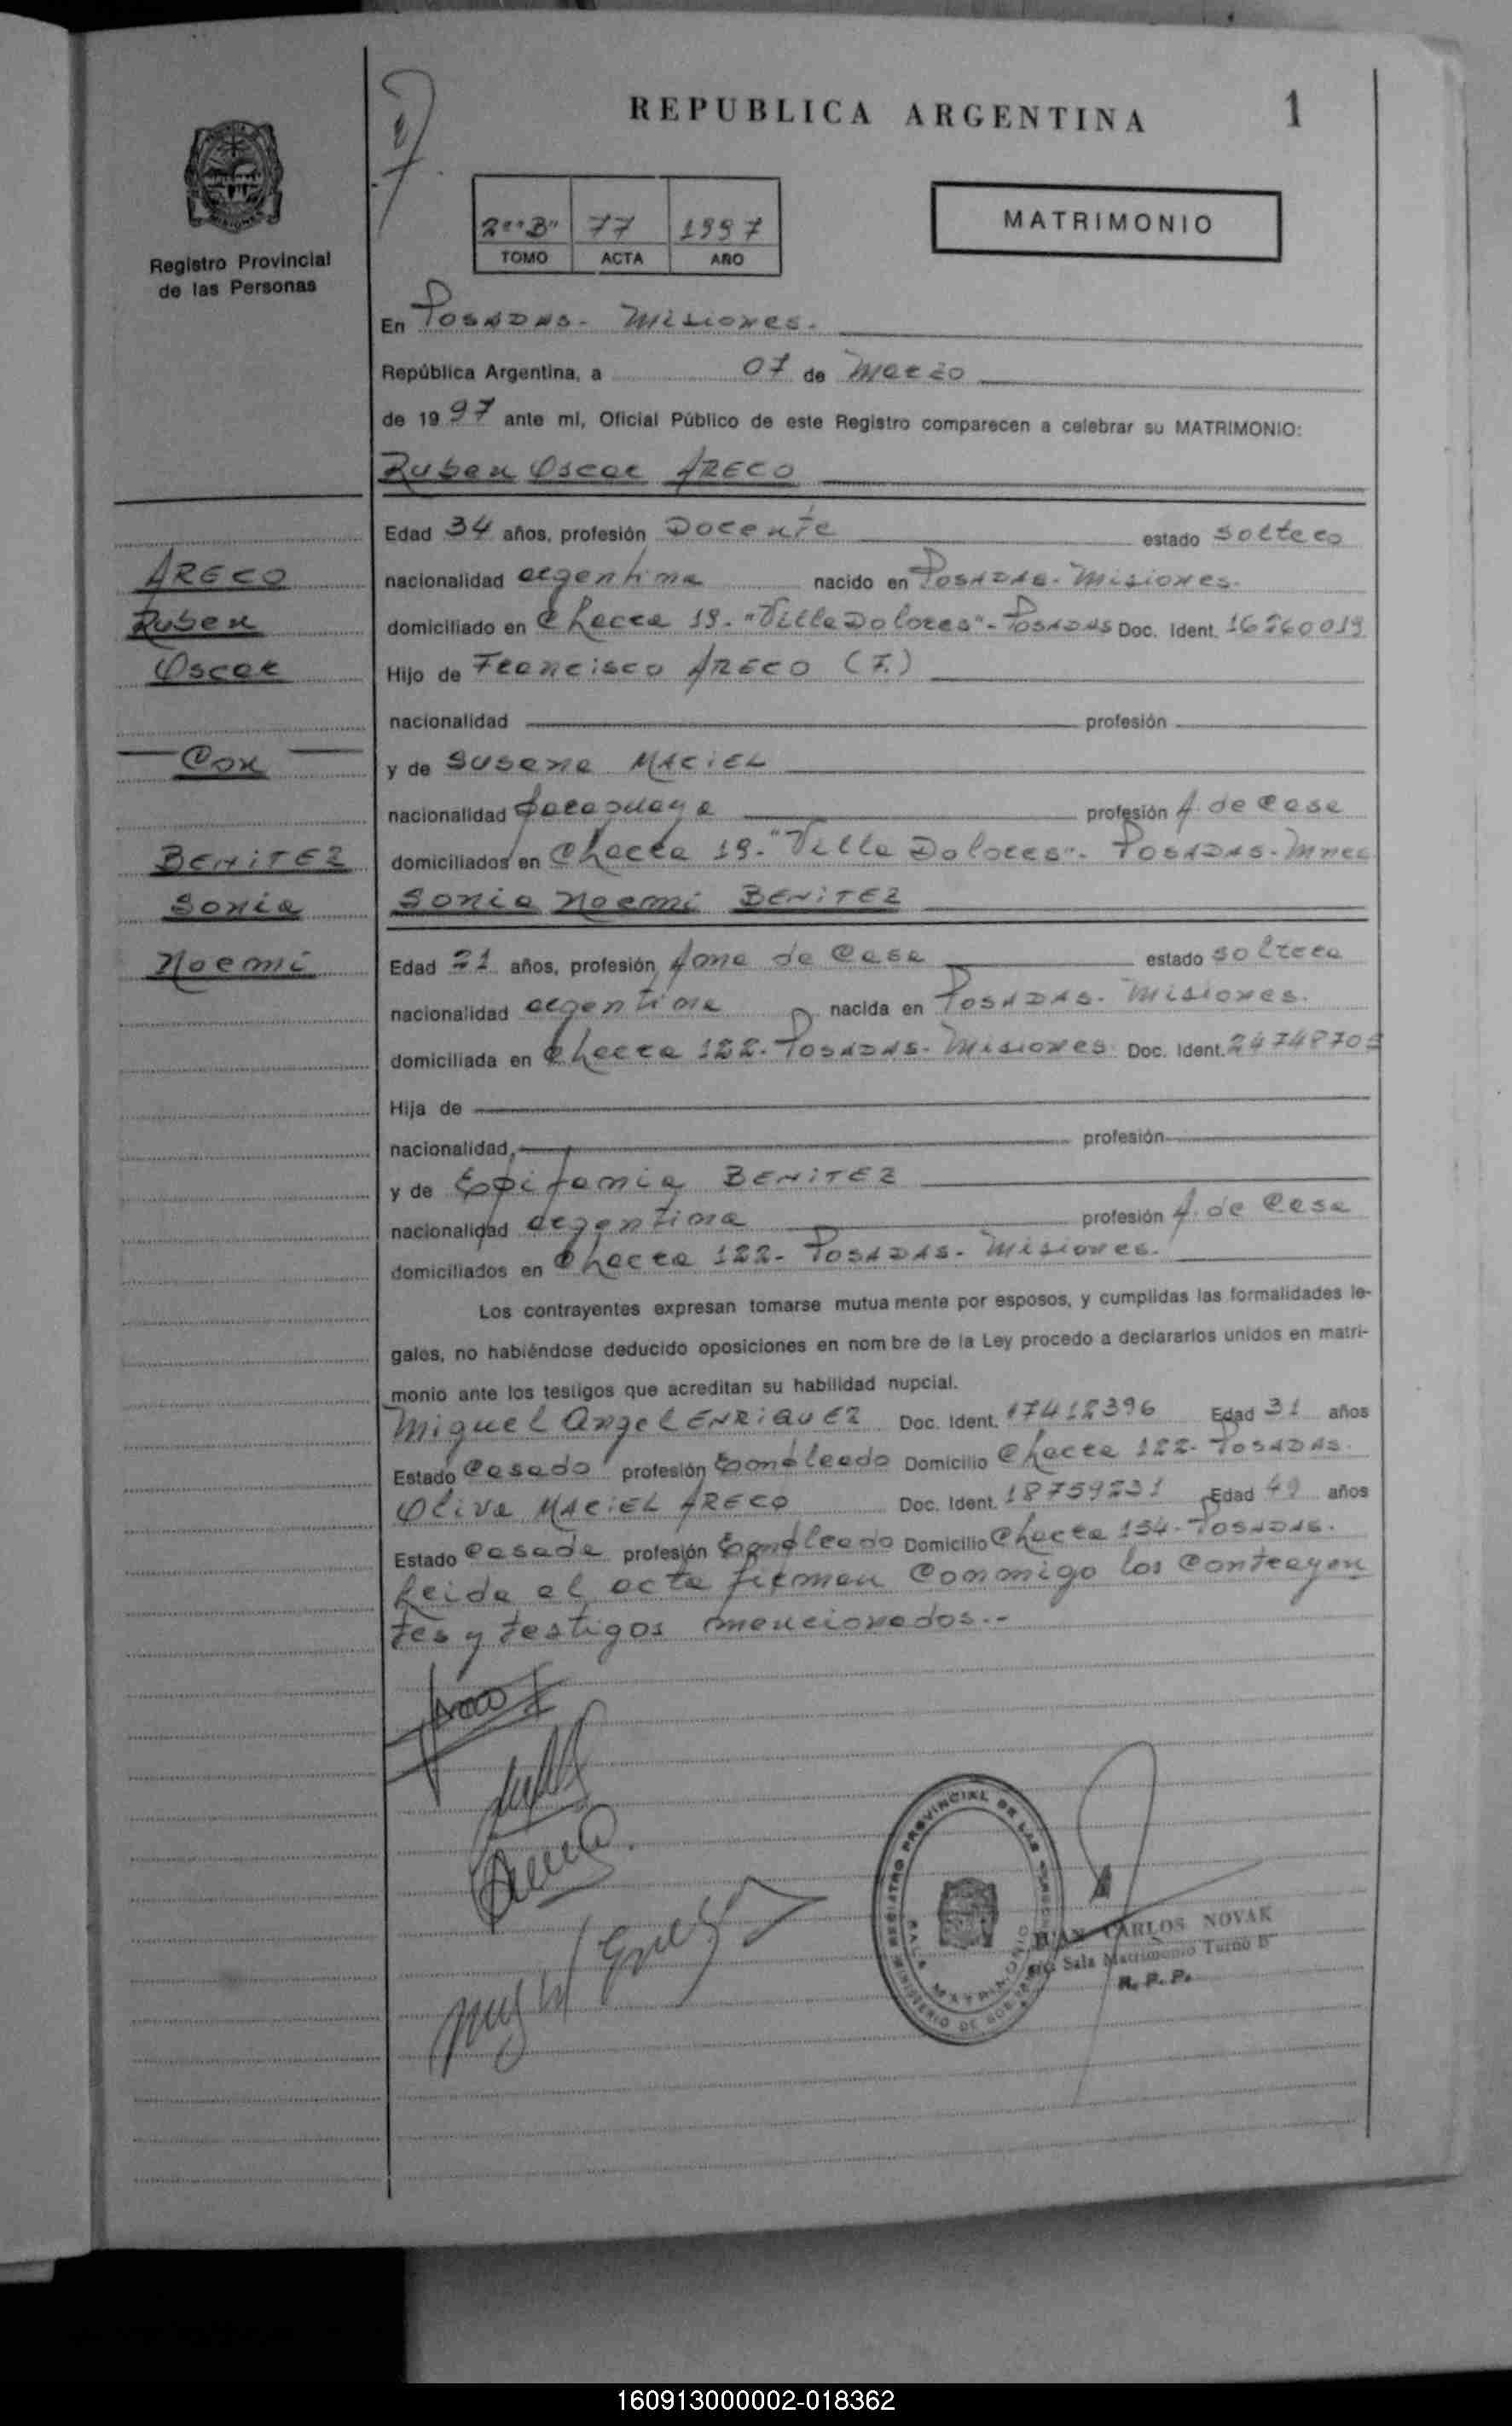 REPUBLICA ARGENTINA
1
2°"B" 77 1997
TOMO ACTA AÑO
MATRIMONIO
Registro Provincial
de las Personas
En Posadas - Misiones.
República Argentina, a 07 de Marzo
de 1997 ante mi, Oficial Público de este Registro comparecen a celebrar su MATRIMONIO:
Ruben Oscar ARECO
Edad 34 años, profesión Docente estado soltero
ARECO
nacionalidad argentina nacido en Posadas - Misiones.
Ruben
domiciliado en Chacra 19 - "Villa Dolores" - Posadas Doc. Ident. 16260019
Oscar
Hijo de Francisco ARECO (F.)
nacionalidad profesión
Con
y de Susana MACIEL
nacionalidad paraguaya profesión A. de Casa
BENITEZ
domiciliados en Chacra 19 - "Villa Dolores" - Posadas - Mnes
Sonia
Sonia Noemi BENITEZ
Noemi
Edad 21 años, profesión Ama de Casa estado soltera
nacionalidad argentina nacida en Posadas - Misiones.
domiciliada en Chacra 122 - Posadas - Misiones Doc. Ident.
Hija de
nacionalidad profesión
y de Epifania BENITEZ
nacionalidad argentina profesión A. de Casa
domiciliados en Chacra 122 - Posadas - Misiones.
Los contrayentes expresan tomarse mutua mente por esposos, y cumplidas las formalidades le-
gales, no habiéndose deducido oposiciones en nom bre de la Ley procedo a declararlos unidos en matri-
monio ante los testigos que acreditan su habilidad nupcial.
Miguel Angel ENRIQUEZ Doc. Ident. 17412396 Edad 31 años
Estado Casado profesión Empleado Domicilio Chacra 122 - Posadas.
Oliva MACIEL ARECO Doc. Ident. 18759231 Edad años
Estado Casada profesión Empleada Domicilio Chacra 154 - Posadas.
Leida el acta firman conmigo los contrayen
tes y testigos mencionados.-
REGISTRO PROVINCIAL DE LAS PERSONAS
SALA MATRIMONIO
MINISTERIO DE
JUAN CARLOS NOVAK
Sala Matrimonio Turno B
R. P. P.
160913000002-018362